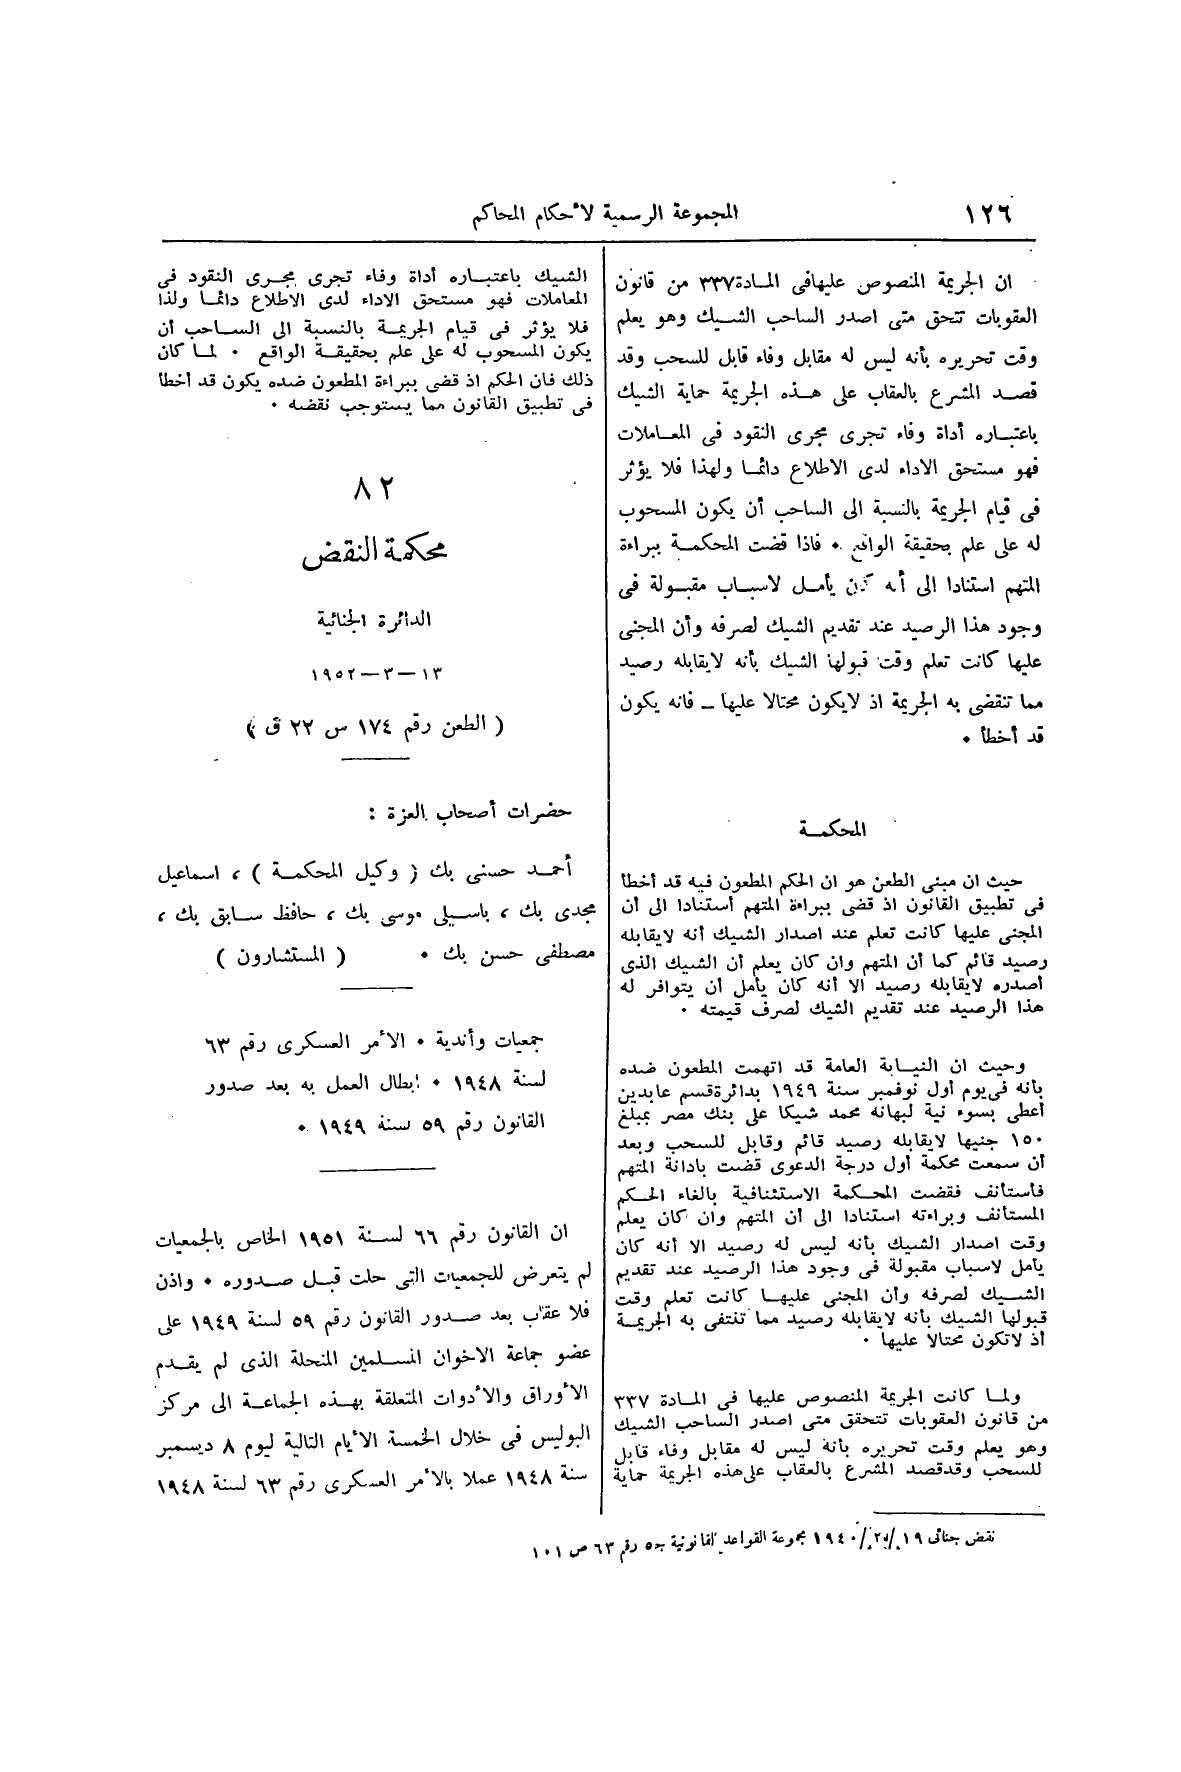 ١٢٦
المجموعة الرسمية لأحكام المحاكم
ان الجريمة المنصوص عليهافى المادة٣٣٧ من قانون
العقوبات تتحق متى اصدر الساحب الشيك وهو يعلم
وقت تحريره بأنه ليس له مقابل وفاء قابل للسحب وقد
قصد المشرع بالعقاب على هذه الجريمة حماية الشيك
باعتباره أداة وفاء تجرى مجرى النقود فى المعاملات
فهو مستحق الاداء لدى الاطلاع دائما ولهذا فلا يؤثر
فى قيام الجريمة بالنسبة الى الساحب أن يكون المسحوب
له على علم بحقيقة الواقع . فاذا قضت المحكمة ببراءة
المتهم استنادا الى أنه كان يأمل لاسباب مقبولة فى
وجود هذا الرصيد عند تقديم الشيك لصرفه وأن المجنى
عليها كانت تعلم وقت قبولها الشيك بأنه لايقابله رصيد
مما تنقضى به الجريمة اذ لايكون محتالا عليها ــ فانه يكون
قد أخطأ .
المحكمة
حيث ان مبنى الطعن هو ان الحكم المطعون فيه قد أخطأ
فى تطبيق القانون اذ قضى ببراءة المتهم أستنادا الى أن
المجنى عليها كانت تعلم عند اصدار الشيك أنه لايقابله
رصيد قائم كما أن المتهم وان كان يعلم أن الشيك الذى
أصدره لايقابله رصيد الا أنه كان يأمل أن يتوافر له
هذا الرصيد عند تقديم الشيك لصرف قيمته .
وحيث ان النيابة العامة قد اتهمت المطعون ضده
بأنه فى يوم أول نوفمبر سنة ١٩٤٩ بدائرة قسم عابدين
أعطى بسوء نية لبهانه محمد شيكا على بنك مصر بمبلغ
١٥٠ جنيها لايقابله رصيد قائم وقابل للسحب وبعد
أن سمعت محكمة أول درجة الدعوى قضت بادانة المتهم
فاستأنف فقضت المحكمة الاستئنافية بالغاء الحكم
المستأنف وبراءته استنادا الى أن المتهم وان كان يعلم
وقت اصدار الشيك بأنه ليس له رصيد الا أنه كان
يأمل لاسباب مقبولة فى وجود هذا الرصيد عند تقديم
الشيك لصرفه وأن المجنى عليها كانت تعلم وقت
قبولها الشيك بأنه لايقابله رصيد مما تنتفى به الجريمة
أذ لاتكون محتالا عليها .
ولما كانت الجريمة المنصوص عليها فى المادة ٣٣٧
من قانون العقوبات تتحقق متى اصدر الساحب الشيك
وهو يعلم وقت تحريره بأنه ليس له مقابل وفاء قابل
للسحب وقدقصد المشرع بالعقاب على هذه الجريمة حماية
نقض جنائى ١٩٤٠ مجموعة القواعد القانونية ج٥ رقم ٦٣ ص ١٠١
الشيك باعتباره أداة وفاء تجرى مجرى النقود فى
المعاملات فهو مستحق الاداء لدى الاطلاع دائما ولذا
فلا يؤثر فى قيام الجريمة بالنسبة الى الساحب أن
يكون المسحوب له على علم بحقيقة الواقع . لما كان
ذلك فان الحكم اذ قضى ببراءة المطعون ضده يكون قد أخطأ
فى تطبيق القانون مما يستوجب نقضه .
٨٢
محكمة النقض
الدائرة الجنائية
١٣ – ٣ – ١٩٥٢
( الطعن رقم ١٧٤ س ٢٢ ق )
حضرات أصحاب العزة :
أحمد حسنى بك ( وكيل المحكمة ) ، اسماعيل
مجدى بك ، باسيلى موسى بك ، حافظ سابق بك ،
مصطفى حسن بك . ( المستشارون )
جمعيات وأندية . الأمر العسكرى رقم ٦٣
لسنة ١٩٤٨ . إبطال العمل به بعد صدور
القانون رقم ٥٩ سنة ١٩٤٩ .
ان القانون رقم ٦٦ لسنة ١٩٥١ الخاص بالجمعيات
لم يتعرض للجمعيات التى حلت قبل صدوره . واذن
فلا عقاب بعد صدور القانون رقم ٥٩ لسنة ١٩٤٩ على
عضو جماعة الاخوان المسلمين المنحلة الذى لم يقدم
الأوراق والأدوات المتعلقة بهذه الجماعة الى مركز
البوليس فى خلال الخمسة الأيام التالية ليوم ٨ ديسمبر
سنة ١٩٤٨ عملا بالأمر العسكرى رقم ٦٣ لسنة ١٩٤٨